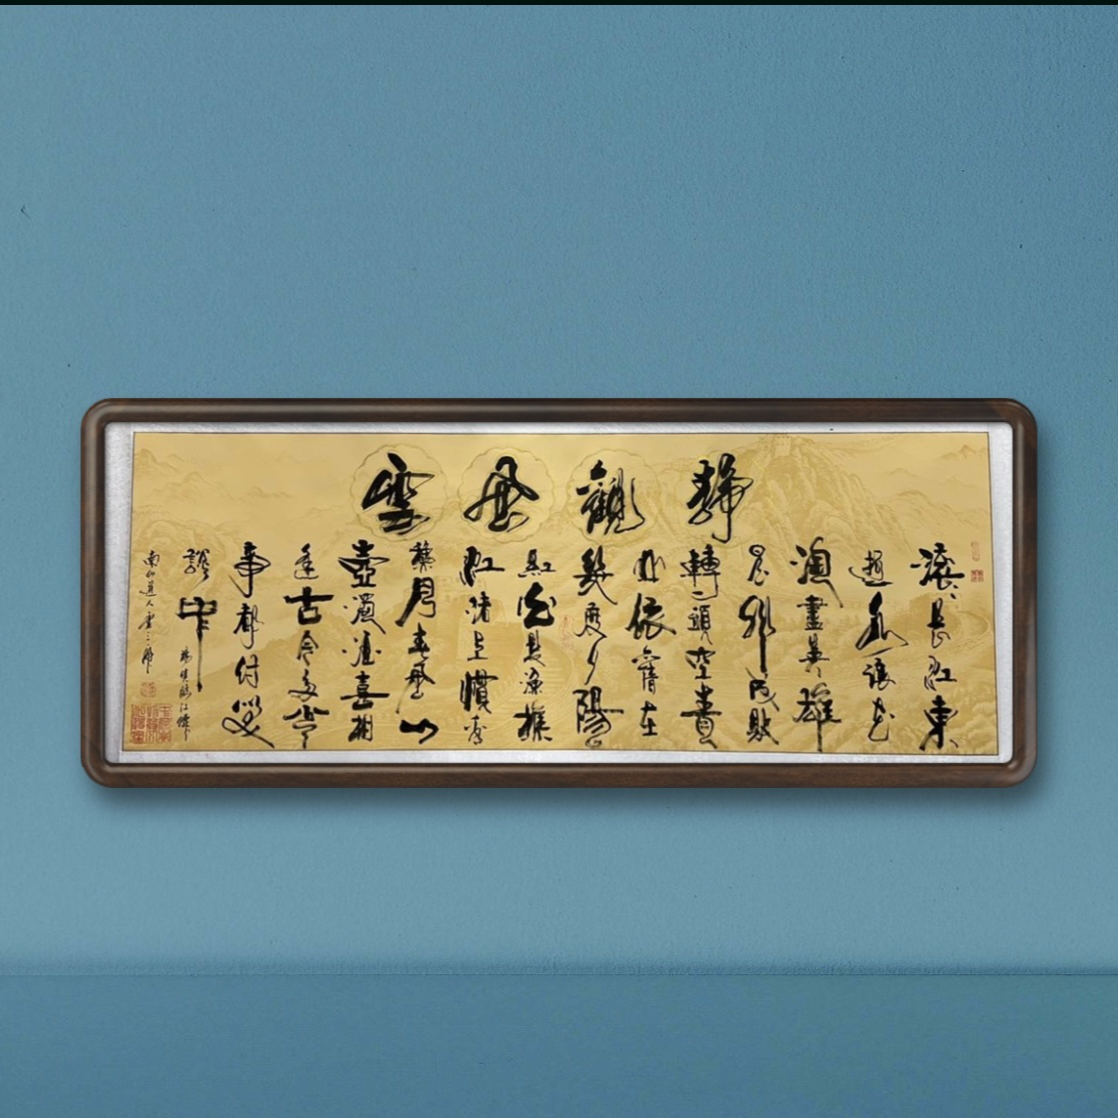 静觀风雲
滚滚長江東
逝水浪花
淘盡英雄
是非成敗
轉頭空青
山依舊在
幾度夕陽
紅白髮漁樵
江渚上慣看
秋月春風一
壺濁酒喜相
逢古今多少
事都付笑
談中 楊慎臨江仙
南山道人